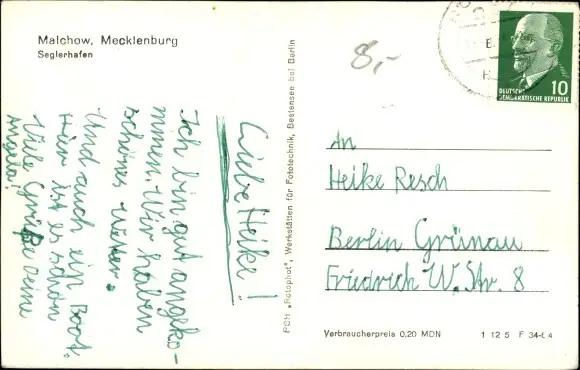 Malchow, Mecklenburg
Seglerhafen
8,-
DEUTSCHE
DEMOKRATISCHE REPUBLIK
10
Liebe Heike!
Ich bin gut angeko-
mmen. Wir haben
schönes Wetter.
Und auch ein Boot.
Hier ist es schön
Viele Grüße deine
Angela!
PGH „Rotophot", Werkstätten für Fototechnik, Bestensee bei Berlin
An
Heike Resch
Berlin Grünau
Friedrich W. Str. 8
Verbraucherpreis 0,20 MDN
1 12 5 F 34-64